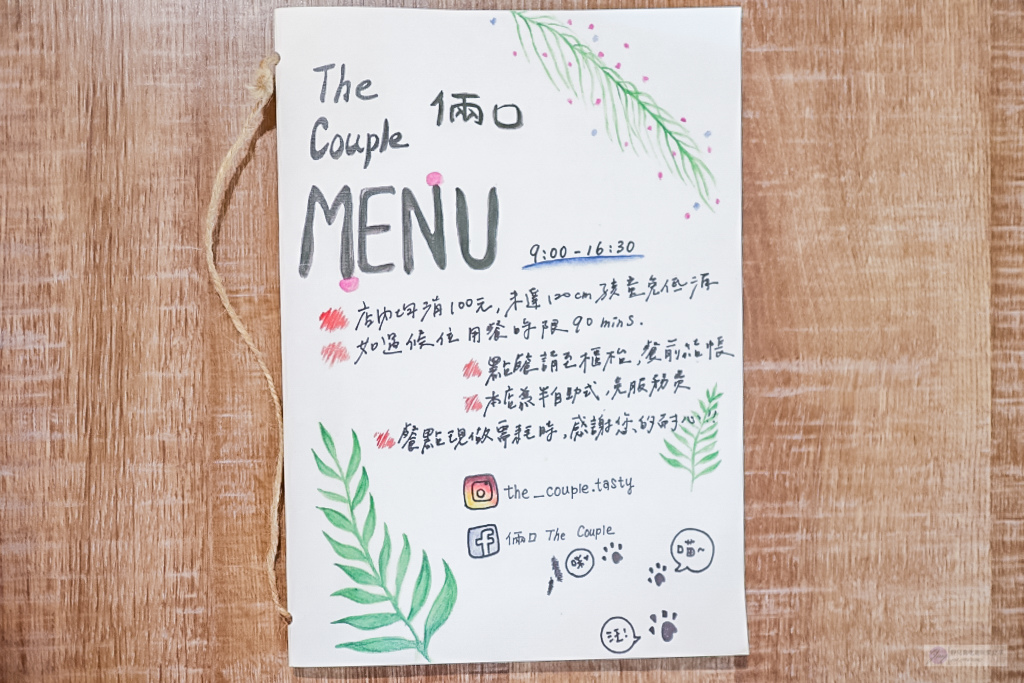 The
Couple
倆口
MENU
9:00-16:30
店內每消100元,未達120cm孩童免低消
如遇候位用餐時限90mins.
點餐請至櫃枱,餐前結帳
本店為半自助式,免服務費
餐點現做需耗時,感謝您的耐心!!
the_couple.tasty
倆口 The Couple
喵~
汪!